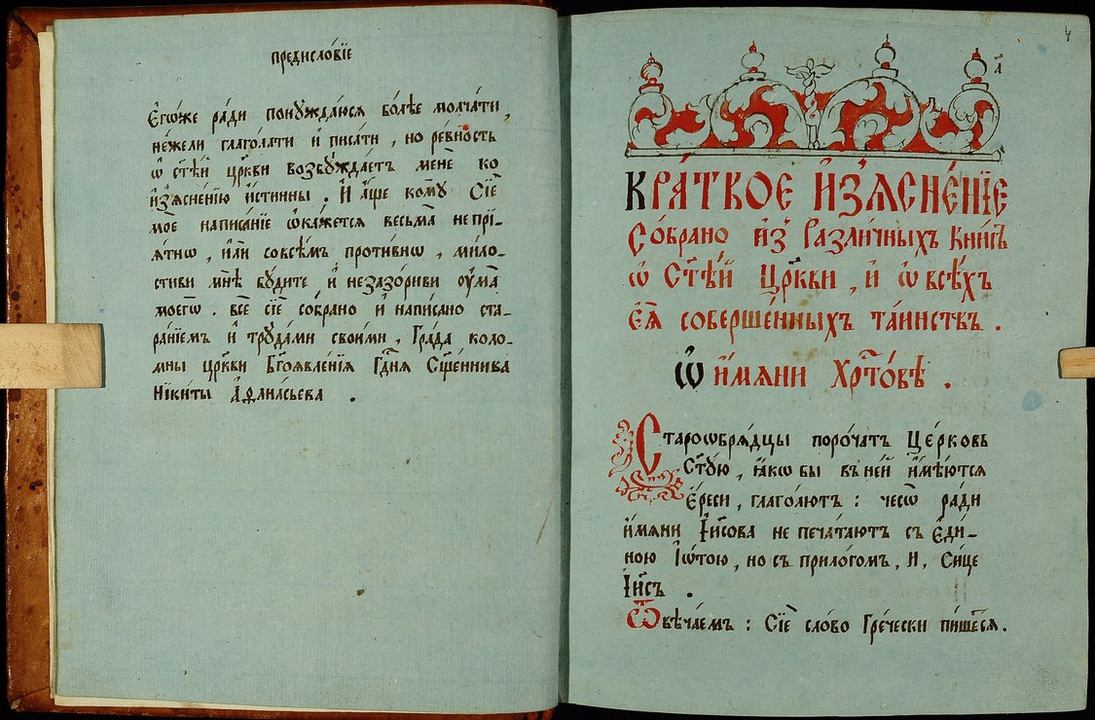 предисло́вїе
Е҆гѡ́же ра́ди понꙋжда́юся бо́лѣе молча́ти,
не́жели глаго́лати и҆ писа́ти, но ре́вность
ѡ҆ ст҃ѣ́й цр҃кви возбꙋжда́етъ менѐ ко
и҆з̾ясне́нїю и҆́стинны. И҆ а҆́ще комꙋ̀ сїѐ
моѐ написа́нїе ѡ҆ка́жется весьма̀ непрї-
я́тно, и҆лѝ совсѣ́мъ проти́вно, мило-
стиви мнѣ̀ бꙋ́дите, и҆ незазо́риви ᲂу҆ма̀
моегѡ̀. всѐ сїѐ со́брано и҆ напи́сано ста-
ра́нїемъ и҆ трꙋда́ми свои́ми, Гра́да коло-
мны цр҃кви Бг҃оявле́нїя Гдⷭ҇ня Сщ҃е́нника
Ніки́ты А҆ѳана́сьева.
а҃
КРА́ТКОЕ И҆З̾ЯСНЕ́НЇЕ
Со́брано и҆з̾ Разли́чныхъ Кни́гъ
ѡ҆ Ст҃ѣ́й Цр҃кви, и҆ ѡ҆ всѣ́хъ
Е҆ѧ̀ соверше́нныхъ та́инствъ.
Ѡ҆ и҆́мяни Хрⷭ҇то́вѣ.
Староѡбря́дцы поро́чатъ Це́рковь
Ст҃ꙋ́ю, ꙗ҆́кѡ бы въ не́й и҆мѣ́ются
Е҆́реси, глаго́лютъ: чесѡ̀ ра́ди
и҆́мяни І҆и҃сова не печа́таютъ съ Е҆ди́-
ною І҆ѡ́тою, но съ прило́гомъ, И, Си́це
І҆и҃съ.
Ѿвѣча́емъ: Сїѐ сло́во Гре́чески пи́шется.